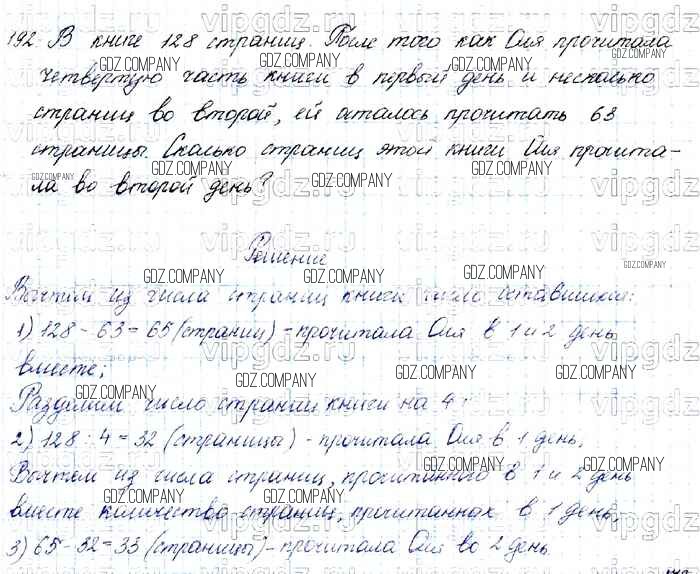 192. В книге 128 страниц. После того как Оля прочитала
четвертую часть книги в первый день и несколько
страниц во второй, ей осталось прочитать 63
страницы. Сколько страниц этой книги Оля прочита-
ла во второй день?
Решение
Вычтем из числа страниц книги число оставшихся:
1) 128 - 63 = 65 (страниц) - прочитала Оля в 1 и 2 день
вместе;
Разделим число страниц книги на 4:
2) 128 : 4 = 32 (страницы) - прочитала Оля в 1 день,
Вычтем из числа страниц, прочитанного в 1 и 2 день
вместе количество страниц, прочитанных в 1 день,
3) 65 - 32 = 33 (страницы) - прочитала Оля во 2 день.
GDZ.COMPANY
vipgdz.ru